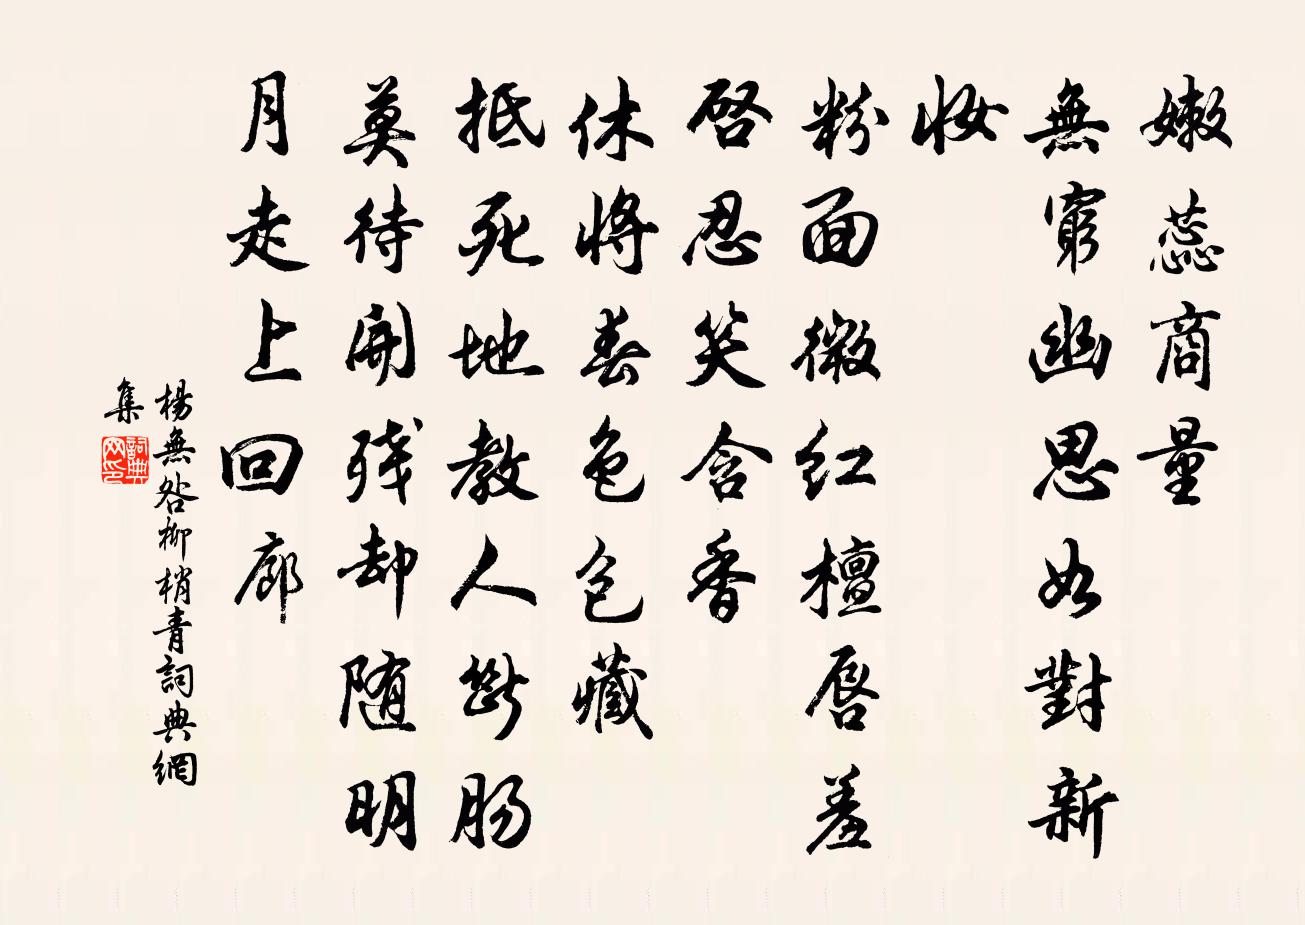 嫩蕊商量
無窮幽思如對新
妝
粉面微红檀唇羞
啓忍笑含香
休將春色包藏
抵死地教人斷肠
莫待開残却随明
月走上回廊
楊無咎柳梢青詞典網
集
詞典
网印